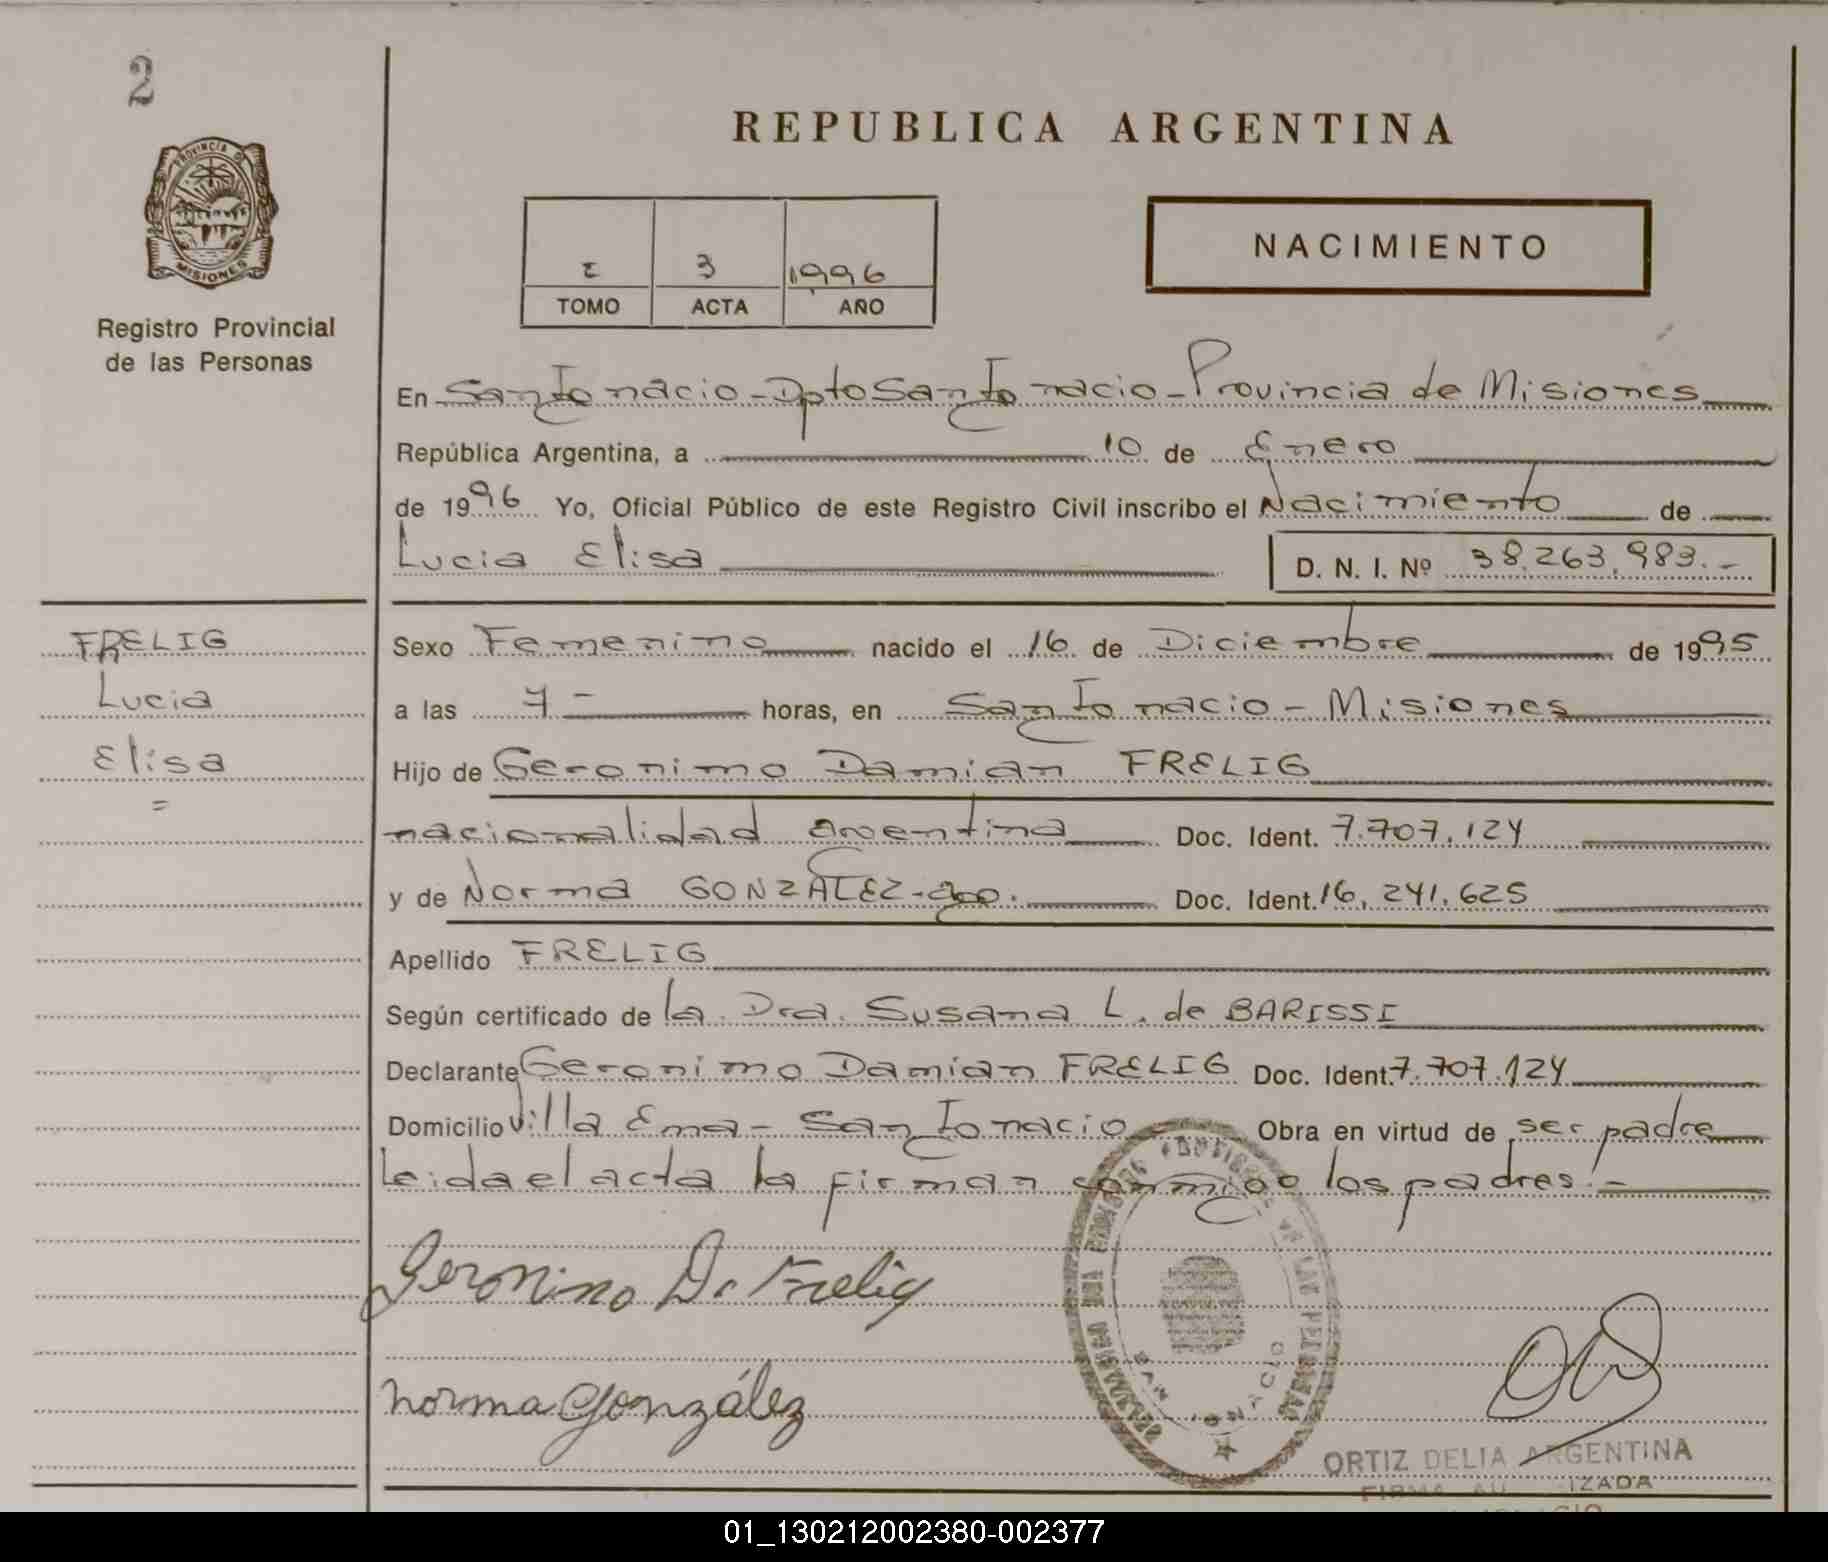 2
REPUBLICA ARGENTINA
PROVINCIA DE
MISIONES
Registro Provincial
de las Personas
I 3 1996
TOMO ACTA AÑO
NACIMIENTO
En San Ignacio - Dpto San Ignacio - Provincia de Misiones
República Argentina, a 10 de Enero
de 1996 Yo, Oficial Público de este Registro Civil inscribo el Nacimiento de
Lucia Elisa D. N. I. Nº 38.263.983.-
FRELIG
Lucia
Elisa
=
Sexo Femenino nacido el 16 de Diciembre de 1995
a las 7 - horas, en San Ignacio - Misiones
Hijo de Geronimo Damian FRELIG
nacionalidad argentina Doc. Ident. 7.707.124
y de Norma GONZALEZ - Doc. Ident. 16.241.625
Apellido FRELIG
Según certificado de la Dra. Susana L. de BARISSI
Declarante Geronimo Damian FRELIG Doc. Ident. 7.707.124
Domicilio Villa Ema - San Ignacio Obra en virtud de ser padre
leida el acta la firman conmigo los padres.-
Geronimo D. Frelig
Norma González
SAN IGNACIO
ORTIZ DELIA ARGENTINA
01_130212002380-002377